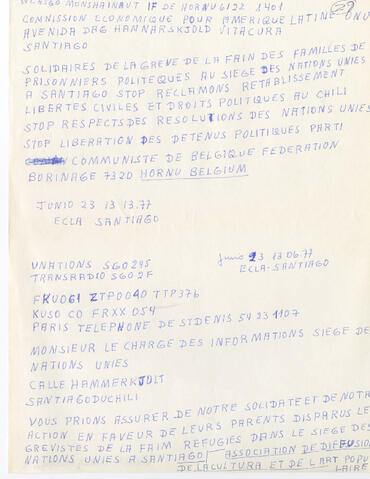 MONSHAINAUT IF DE HORNU 6122 1401
COMISSION ECONOMIQUE POUR AMERIQUE LATINE ONU
AVENIDA DAG HANNARSKJOLD VITACURA
SANTIAGO
29
SOLIDAIRES DE LA GREVE DE LA FAIN DES FAMILLES DE
PRISONNIERS POLITEQUES AU SIEGE DES NATIONS UNIES
A SANTIAGO STOP RECLAMONS RETABLISSEMENT
LIBERTES CIVILES ET DROITS POLITIQUES AU CHILI
STOP RESPECTS DES RESOLUTIONS DES NATIONS UNIES
STOP LIBERATION DES DETENUS POLITIQUES PARTI
COMMUNISTE DE BELGIQUE FEDERATION
BORINAGE 7320 HORNU BELGIUM
JUNIO 23 13 13.77
ECLA SANTIAGO
UNATIONS SGO295
TRANSRADIO SGO2F
Junio 23 13 06.77
ECLA-SANTIAGO
FKU061 ZTP0040 TTP376
KUSO CO FRXX 054
PARIS TELEPHONE DE STDENIS 54 23 1107
MONSIEUR LE CHARGE DES INFORMATIONS SIEGE DES
NATIONS UNIES
CALLE HAMMERKJOLT
SANTIAGODUCHILI
VOUS PRIONS ASSURER DE NOTRE SOLIDATE ET DE NOTRE
ACTION EN FAVEUR DE LEURS PARENTS DISPARUS LES
GREVISTES DE LA FAIM REFUGIES DANS LE SIEGE DES
NATIONS UNIES A SANTIAGO/ ASSOCIATION DE DIFFUSION
DE LA CULTURA ET DE L'ART POPU
LAIRE